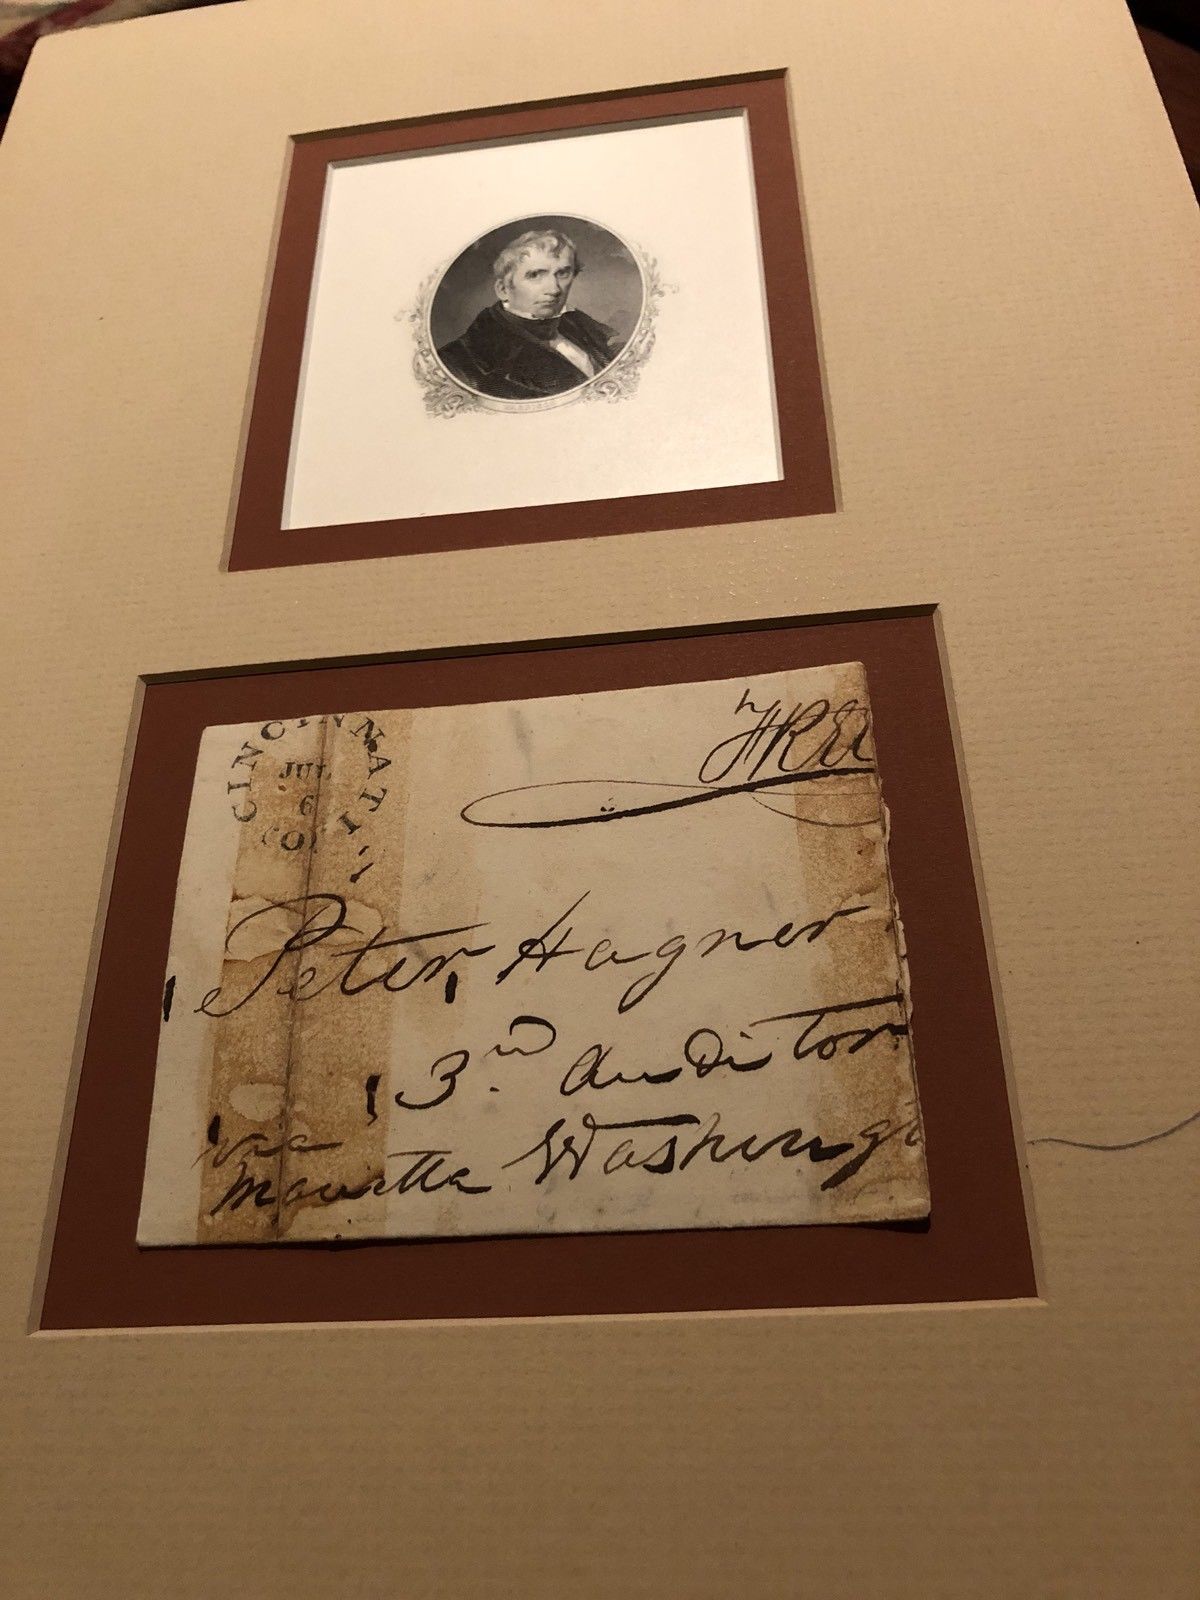 HARRISON
CINCINNATI
JUL
6
(O)
FREE
Peter Hagner
3rd Auditor
via
Marietta Washingt